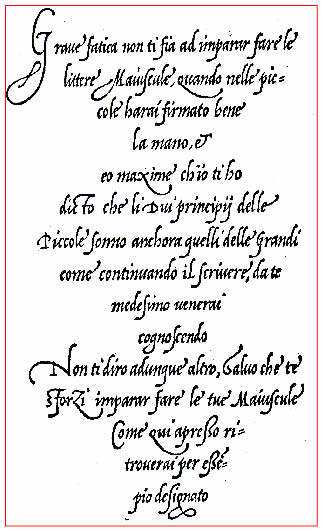 Grave fatica non ti fia ad imparar fare le
littere Maiuscule, quando nelle pic=
cole harai firmato bene
la mano, et
eo maxime ch'io ti ho
dicto che li Dui principij delle
Piccole sonno anchora quelli delle Grandi
come continuando il scrivere, da te
medesimo venerai
cognoscendo
Non ti diro adunque altro, Salvo che te
sforzi imparar fare le tue Maiuscule
Come qui apresso ri-
troverai per essē-
pio designato